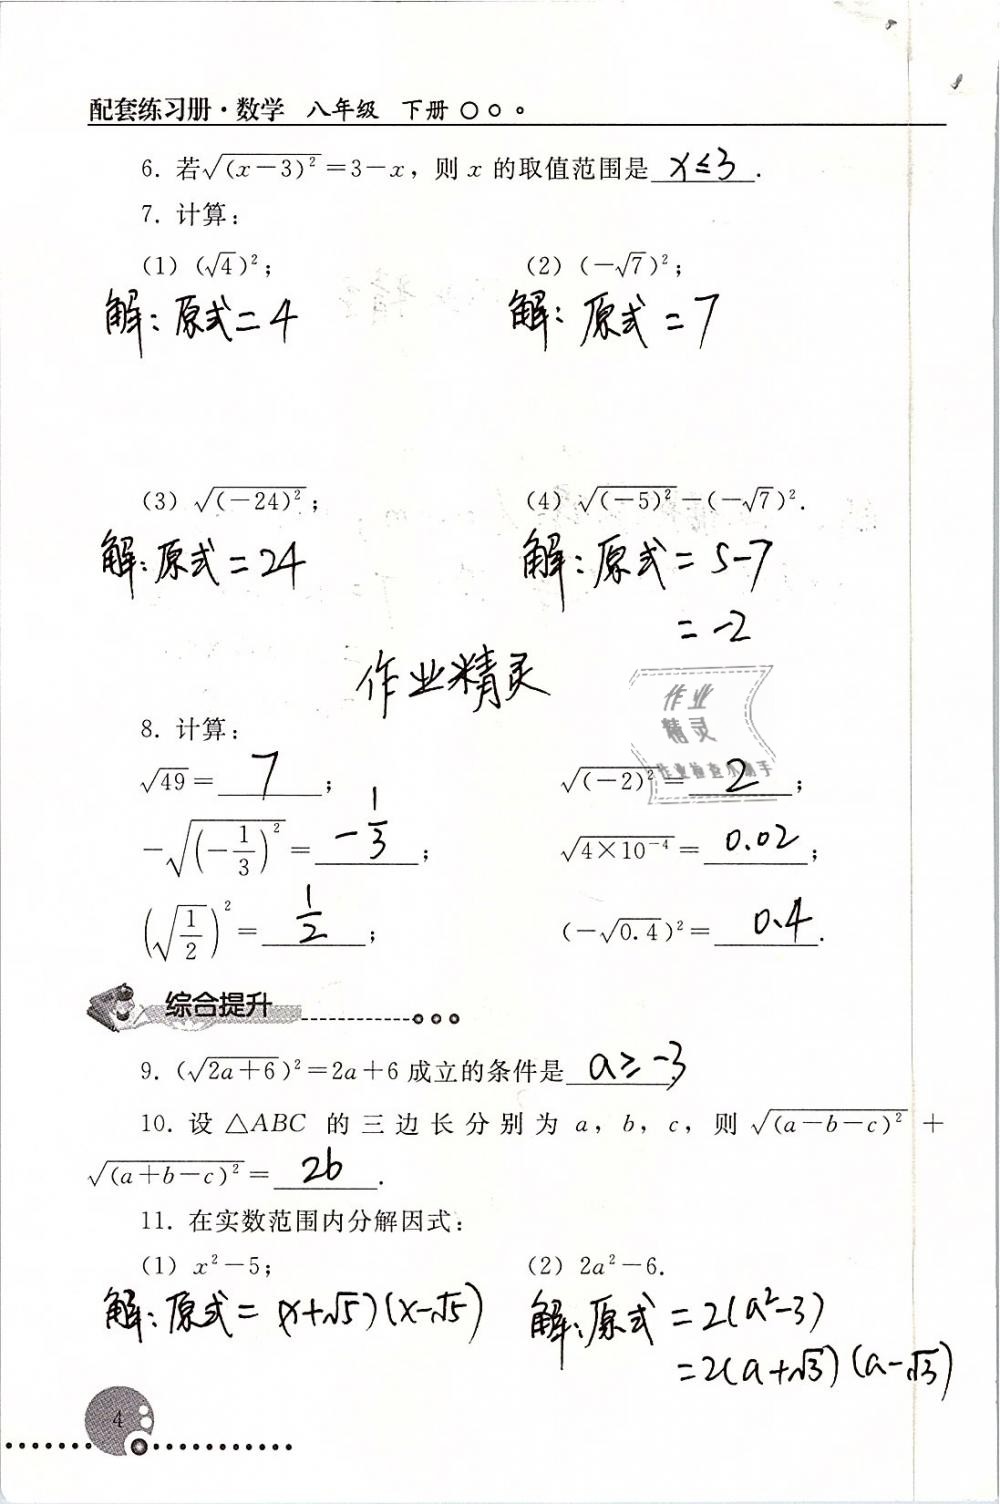 配套练习册·数学 八年级 下册
6. 若√(x-3)²=3-x，则 x 的取值范围是 x≤3.
7. 计算：
(1) (√4)²; (2) (-√7)²;
解：原式=4 解：原式=7
(3) √(-24)²; (4) √(-5)²-(-√7)².
解：原式=24 解：原式=5-7
=-2
作业精灵
作业
精灵
作业检查小助手
8. 计算：
√49=7; √(-2)²=2;
-√(-1/3)²=-1/3; √4×10⁻⁴=0.02;
(√1/2)²=1/2; (-√0.4)²=0.4.
综合提升
9. (√2a+6)²=2a+6 成立的条件是 a≥-3.
10. 设 △ABC 的三边长分别为 a，b，c，则 √(a-b-c)² +
√(a+b-c)²=2b.
11. 在实数范围内分解因式：
(1) x²-5; (2) 2a²-6.
解：原式=(x+√5)(x-√5) 解：原式=2(a²-3)
=2(a+√3)(a-√3)
4